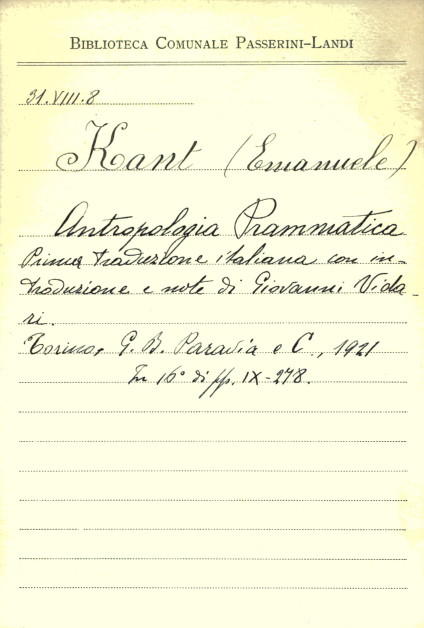 BIBLIOTECA COMUNALE PASSERINI-LANDI
31.VIII.8
Kant (Emanuele)
Antropologia Prammatica
Prima traduzione italiana con in-
troduzione e note di Giovanni Vida-
ri.
Torino, G. B. Paravia e C., 1921
In 16° di pp. IX-278.